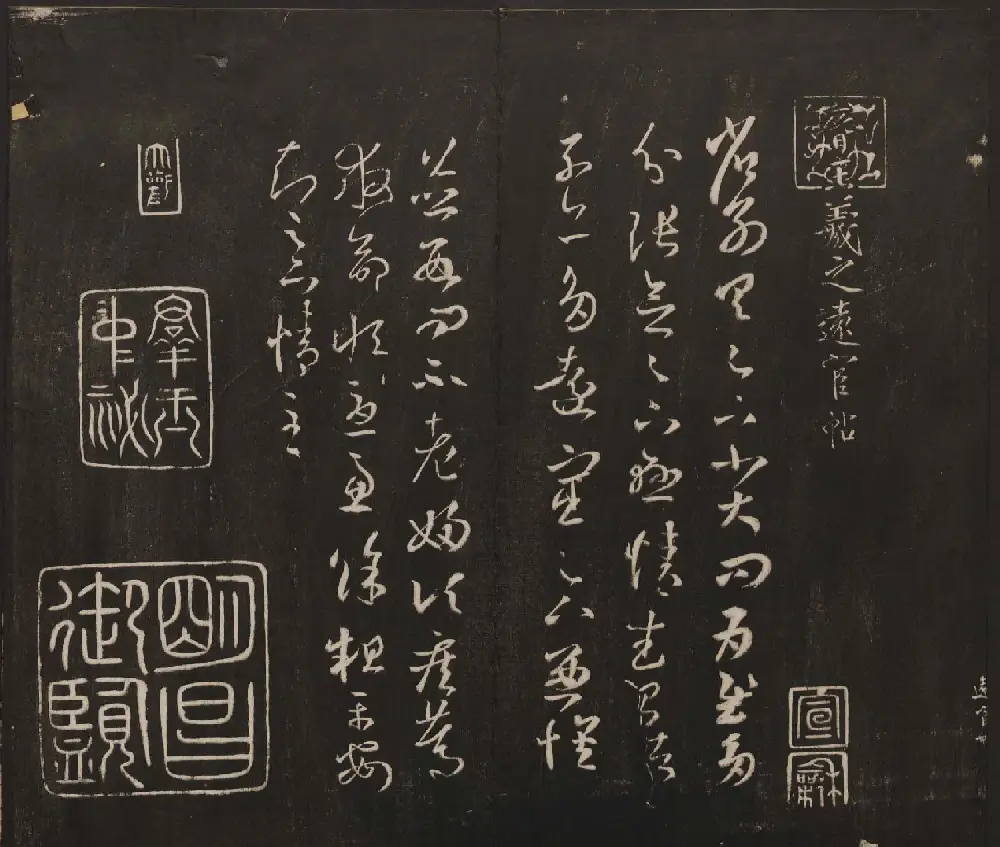 羲之遠宦帖
宣龢
省別具足下小大問為慰多
分張念足下懸情武昌諸
子亦多遠宦足下兼懷
並數問不老婦頃疾篤
救命恒憂慮餘粗平安
知足下情至
大觀
羣玉中祕
明昌御覽
遠宦